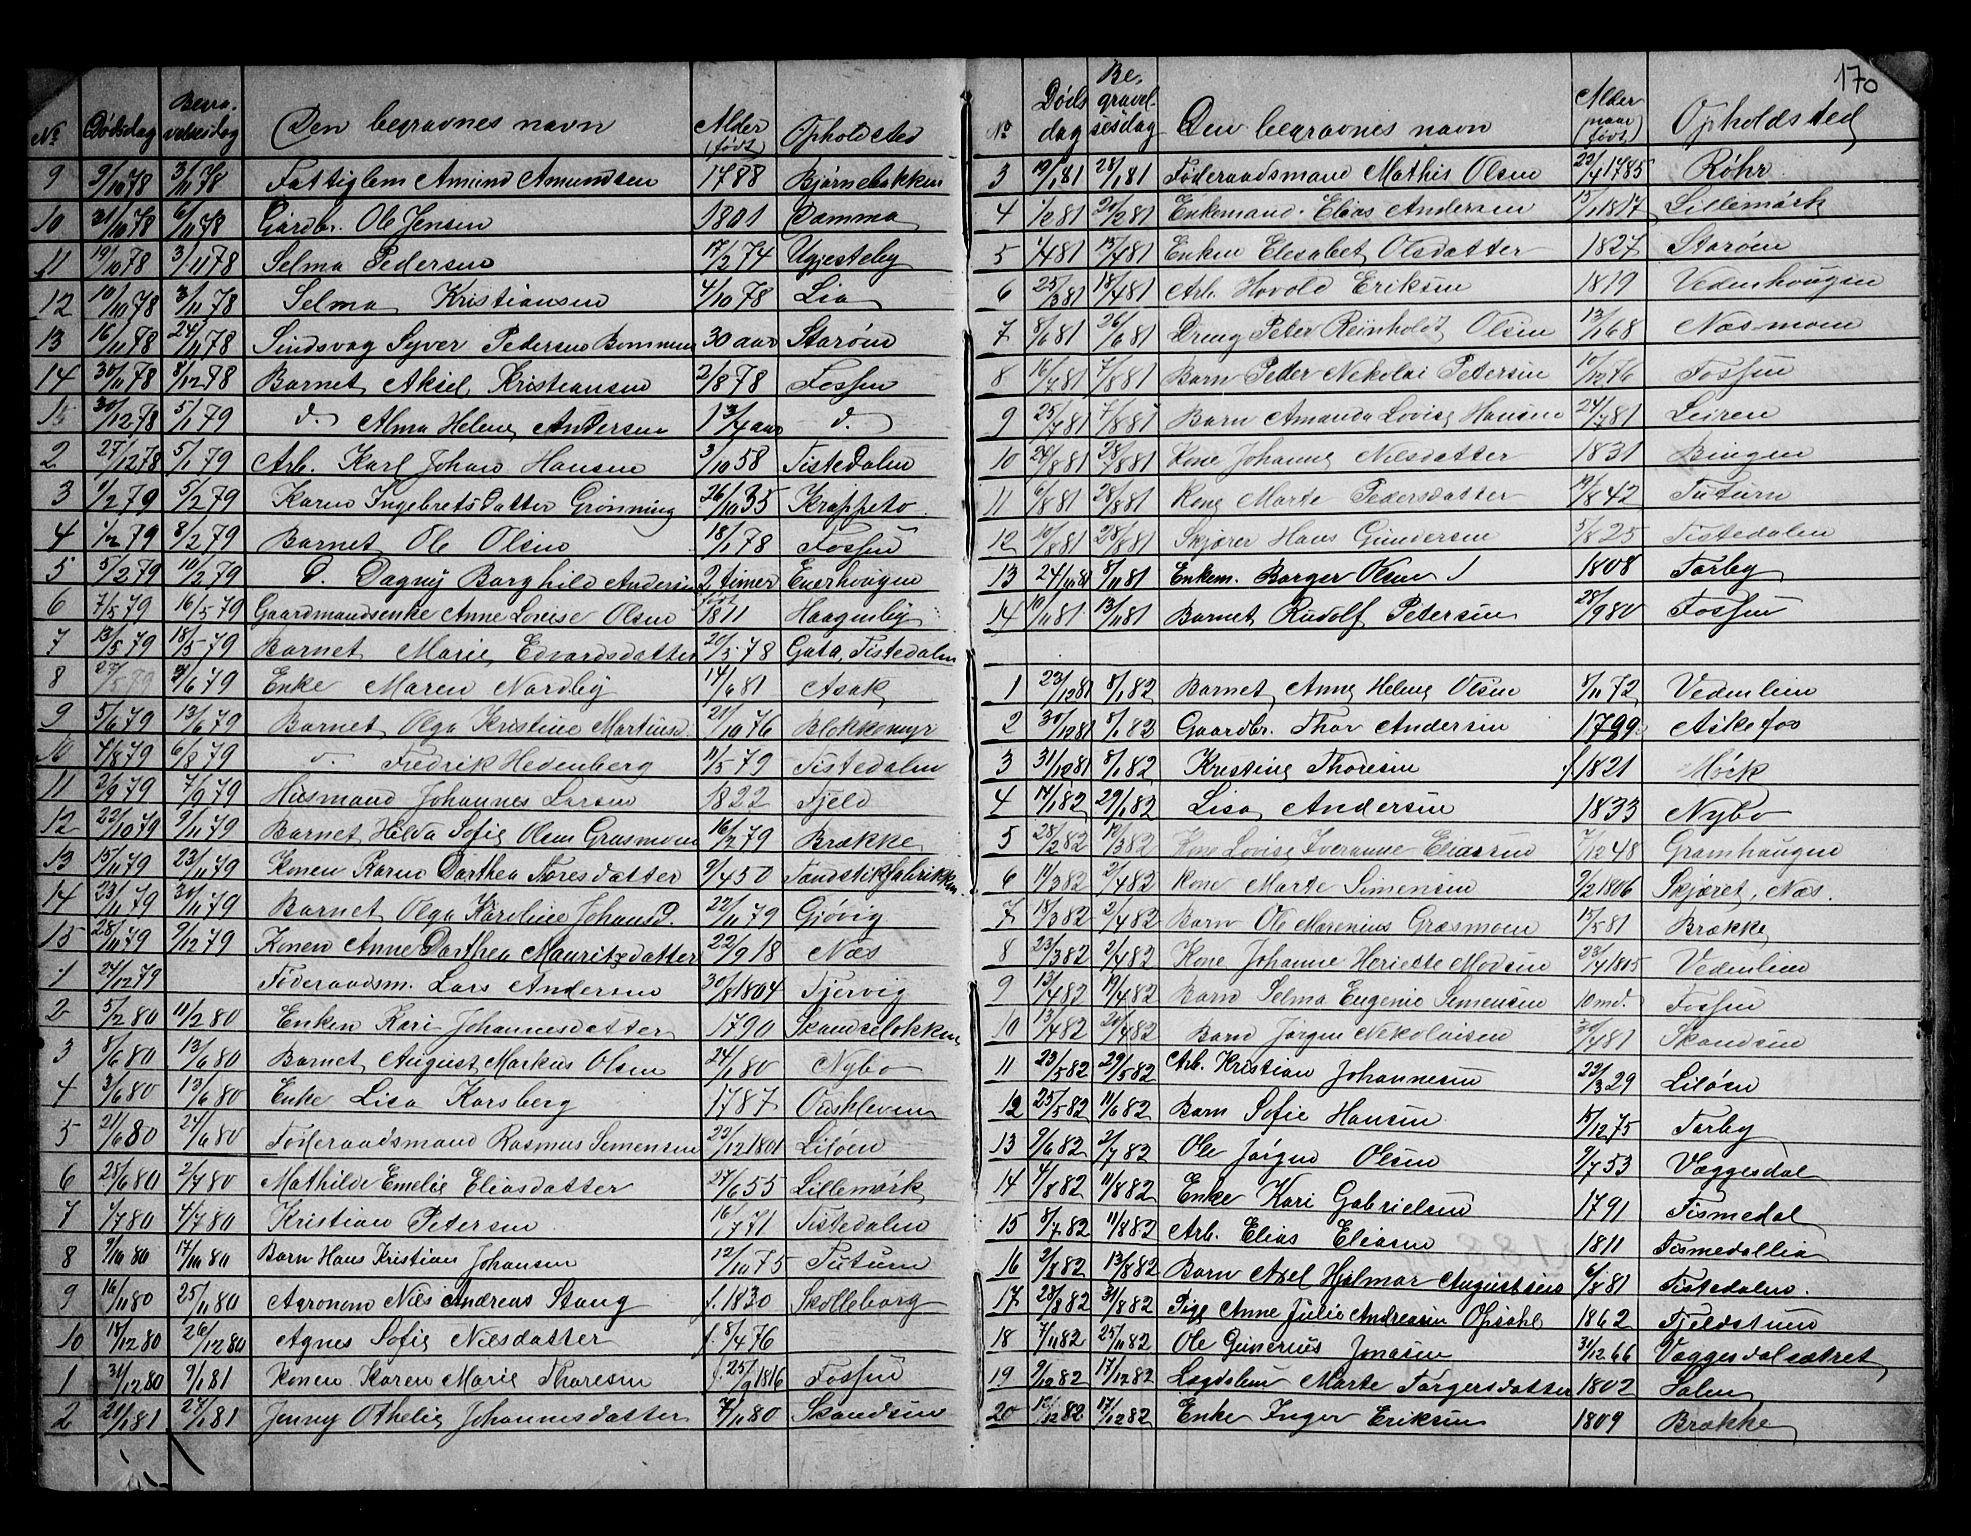 170
No Dødsdag Begravelsesdag Den begravnes navn Alder (født) Opholdsted
9 9/10 78 3/11 78 Fattiglem Amund Amundsen 1788 Bjørnebakken
10 31/10 78 6/11 78 Gårdbr. Ole Jensen 1801 Damma
11 19/10 78 3/11 78 Selma Pedersen 17/2 74 Ugjesteby
12 10/10 78 3/11 78 Selma Kristiansen 4/10 78 Lia
13 16/11 78 24/11 78 Sindsvag Syver Pedersen Bommen 30 aar Starøen
14 30/11 78 8/12 78 Barnet Aksel Kristiansen 2/8 78 Fossen
15 30/12 78 5/1 79 d. Alma Helene Andersen 1 3/4 aar d.
2 27/12 78 5/1 79 Arb. Karl Johan Hansen 3/10 58 Tistedalen
3 1/2 79 5/2 79 Karen Ingebretsdatter Grønning 26/10 35 Krappeto
4 1/2 79 8/2 79 Barnet Ole Olsen 18/1 78 Fossen
5 5/2 79 10/2 79 d. Dagny Borghild Andersen 2 timer Enerhougen
6 7/5 79 16/5 79 Gaardmandsenke Anne Lovise Olsen født 1811 Haagenby
7 13/5 79 18/5 79 Barnet Marie Edvardsdatter 20/5 78 Gata, Tistedalen
8 27/5 79 2/6 79 Enke Maren Nordby 14/6 81 Asak
9 5/6 79 13/6 79 Barnet Olga Kristine Martinsd. 21/10 76 Blokkemyr
10 4/8 79 6/8 79 d. Fredrik Hedenberg 11/5 79 Tistedalen
11 2/9 79 7/9 79 Husmand Johannes Larsen 1822 Fjeld
12 22/10 79 9/11 79 Barnet Hilda Sofie Olsen Grasmoen 16/2 79 Brække
13 15/11 79 23/11 79 Konen Karen Dorthea Toresdatter 9/4 50 Tandstikfabrikken
14 23/11 79 30/11 79 Barnet Olga Karoline Johansd. 22/11 79 Gjøvig
15 28/11 79 9/12 79 Konen Anne Dorthea Mauritzdatter 22/9 18 Næs
1 24/12 79 Føderaadsm. Lars Andersen 30/8 1804 Tjervig
2 5/2 80 11/2 80 Enken Kari Johannesdatter 1790 Skandselokken
3 8/6 80 13/6 80 Barnet August Markus Olsen 24/1 80 Nybo
4 3/6 80 13/6 80 Enke Lisa Korsberg 1787
5 21/6 80 24/6 80 Føderaadsmand Rasmus Semensen 22/12 1801 Liløen
6 25/6 80 2/7 80 Mathilde Emelie Eliasdatter 27/6 55 Lillemørk
7 1/7 80 4/7 80 Kristian Petersen 16/1 71 Tistedalen
8 9/10 80 17/10 80 Barn Hans Kristian Johansen 12/10 75 Tuturn
9 16/11 80 25/11 80 Agronom Nils Andreas Stang f. 1830 Skolleborg
10 18/12 80 26/12 80 Agnes Sofie Nilsdatter f. 8/4 76
1 31/12 80 9/1 81 Konen Karen Marie Thoresen f. 25/9 1816 Fossen
2 21/1 81 24/1 81 Jenny Othelie Johannesdatter 7/11 80 Skandsen
No Dødsdag Begravelsesdag Den begravnes navn Alder (naar født) Opholdsted
3 19/1 81 28/1 81 Føderaadsmand Mathis Olsen 22/4 1785 Røhr
4 1/2 81 20/2 81 Enkemand. Elias Andersen 15/1 1817 Lillemørk
5 1/4 81 15/4 81 Enken Elesabet Olsdatter 1827 Starøen
6 25/3 81 18/4 81 Arb. Hovold Eriksen 1819 Vedenhougen
7 8/6 81 26/6 81 Dreng Peter Reinholdt Olsen 13/1 68 Næsmoen
8 16/7 81 7/8 81 Barn Peder Nekolai Petersen 10/12 76 Fossen
9 25/7 81 7/8 81 Barn Amanda Lovise Hansen 24/7 81 Leiren
10 24/8 81 28/8 81 Kone Johanne Nilsdatter 1831 Bingen
11 6/8 81 28/8 81 Kone Marte Pedersdatter 19/8 42 Tuturn
12 10/8 81 28/8 81 Skjører Hans Gundersen 5/8 25 Tistedalen
13 24/10 81 8/11 81 Enkem. Borger Olsen 1808 Torby
14 10/11 81 13/11 81 Barnet Rudolf Petersen 28/9 80 Fossen
1 23/12 81 8/1 82 Barnet Anne Helene Olsen 8/11 72 Vedenlien
2 30/12 81 8/1 82 Gaardbr. Thor Andersen 1799 Askefos
3 31/12 81 8/1 82 Kristine Thoresen 1821 Mørk
4 17/1 82 29/1 82 Lisa Andersen 1833 Nybo
5 28/2 82 10/3 82 Kone Lovise Iveranne Eliassen 7/12 48 Gramhaugen
6 11/3 82 2/4 82 Kone Marte Simensen 9/2 1806 Skjæret, Næs.
7 18/3 82 2/4 82 Barn Ole Marenius Græsmoen 15/5 81 Brække
8 23/3 82 2/4 82 Kone Johanne Heriette Madsen 23/4 1805 Vedenlien
9 13/4 82 19/4 82 Barn Selma Eugenie Simensen 10 md. Fossen
10 13/4 82 20/4 82 Barn Jørgen Nekolaisen 30/4 81 Skandsen
11 23/5 82 29/5 82 Arb. Kristian Johannesen 22/3 29 Liløen
12 25/5 82 11/6 82 Barn Sofie Hansen 15/12 75 Torby
13 9/6 82 2/7 82 Ole Jørgen Olsen 9/7 53 Væggesdal
14 4/8 82 11/8 82 Enke Kari Gabrielsen 1791 Tismedal
15 8/7 82 11/8 82 Arb. Elias Eliasen 1811 Tismedallia
16 2/8 82 13/8 82 Barn Axel Hjalmar Augustsen 6/8 81 Tistedalen.
17 28/8 82 31/8 82 Pige Anne Julie Andreasen Opsahl 1862 Fjeldstuen
18 7/11 82 25/11 82 Ole Gunerius Jonasen 31/12 66 Væggesdalsætret
19 9/12 82 17/12 82 Lægdslem Marte Torgersdatter 1802 Solem
20 12/12 82 17/12 82 Enke Inger Eriksen 1809 Brække